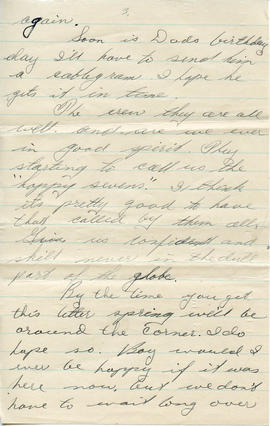 3.
again.
Soon is Dads birthday
day I'll have to send him
a cablegram. I hope he
gets it in time.
The crew they are all
well and are we ever
in good spirit. They
starting to call us the
"happy sevens". I think
its pretty good to have
that called by them all.
Gives us confident and
still never in the dull
part of the globe.
By the time you get
this letter spring will be
around the corner. I do
hope so. Boy would I
ever be happy if it was
here now, but we don't
have to wait long over